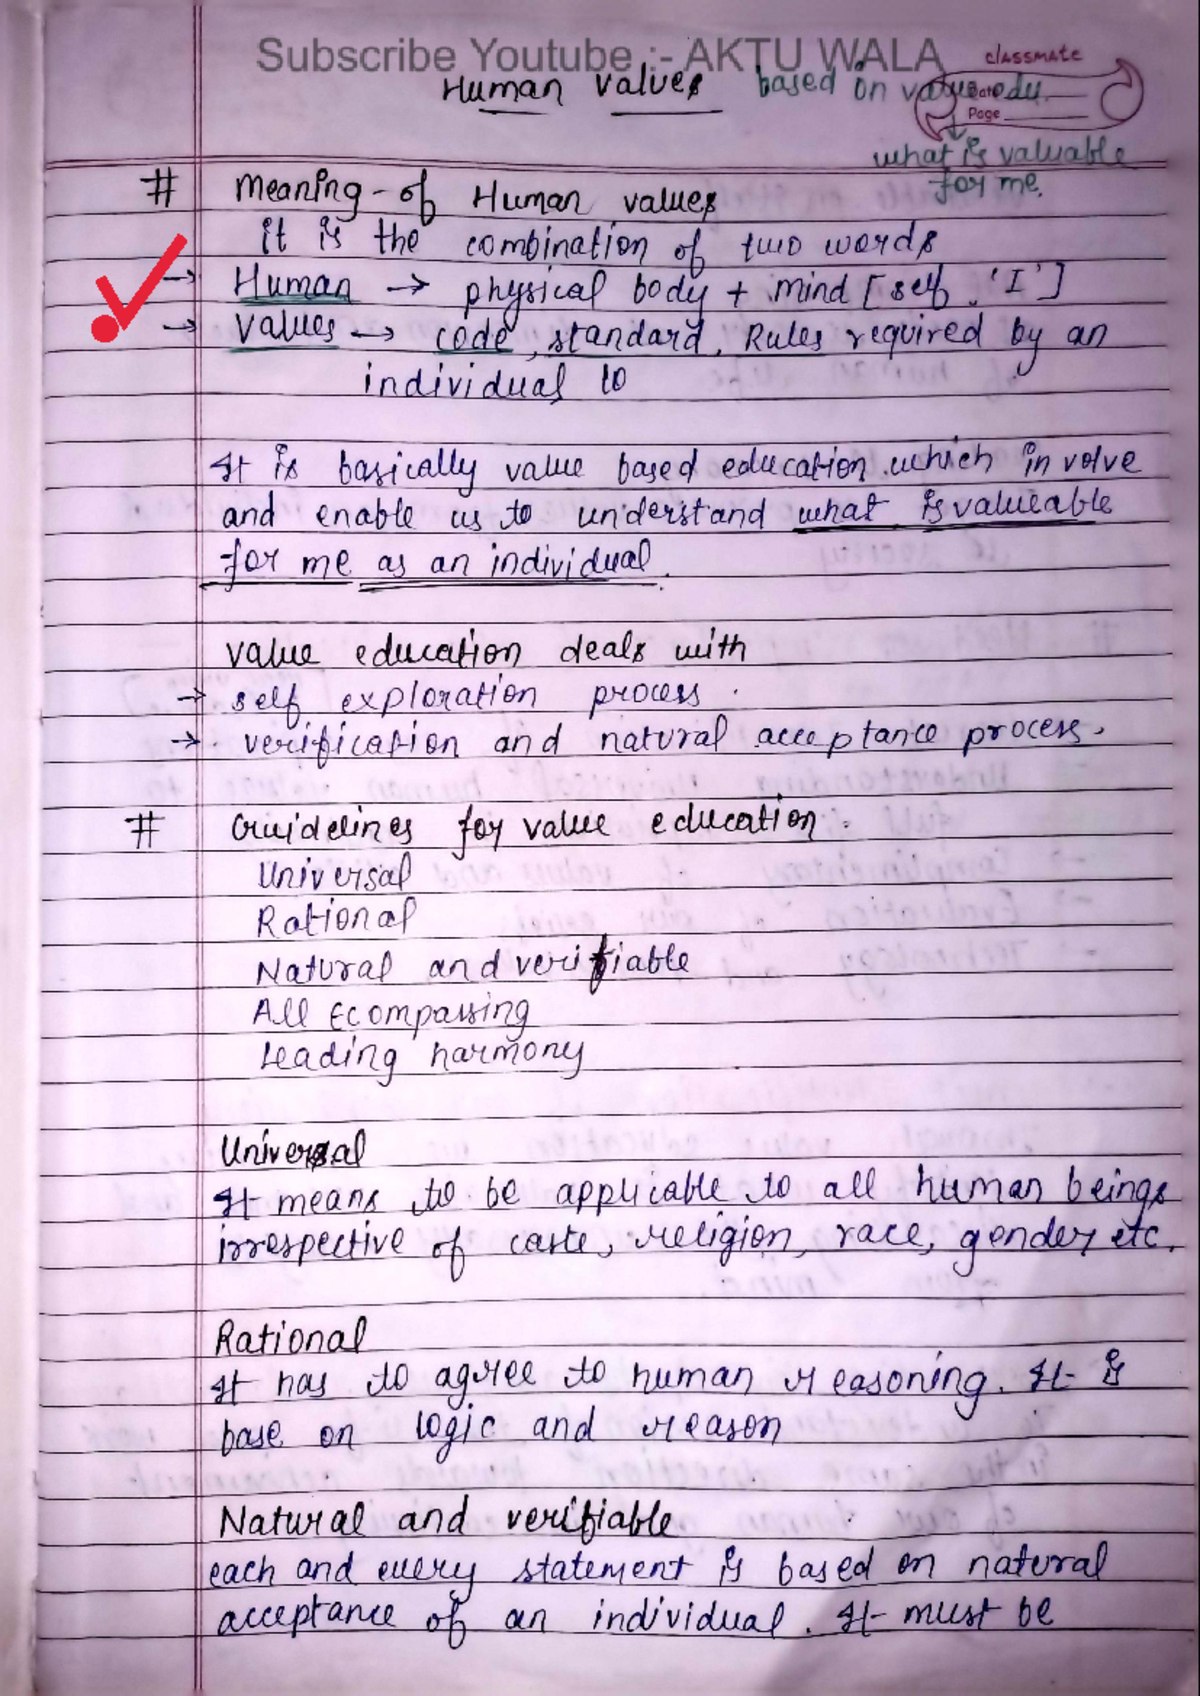 Subscribe Youtube :- AKTU WALA
classmate
Human Values based on value edu.
Date
Page
what is valuable
for me.
# Meaning of Human values
it is the combination of two words
→ Human → physical body + mind [self 'I']
→ Values → code, standard, Rules required by an
individual to
It is basically value based education which in volve
and enable us to understand what is valueable
for me as an individual.
value education deals with
→ self exploration process.
→ verification and natural acceptance process.
# Guidelines for value education.
Universal
Rational
Natural and verifiable
All Ecompassing
Leading harmony
Universal
It means to be applicable to all human beings
irrespective of caste, religion, race, gender etc.
Rational
It has to agree to human reasoning. It is
base on logic and reason
Natural and verifiable
each and every statement is based on natural
acceptance of an individual. It must be